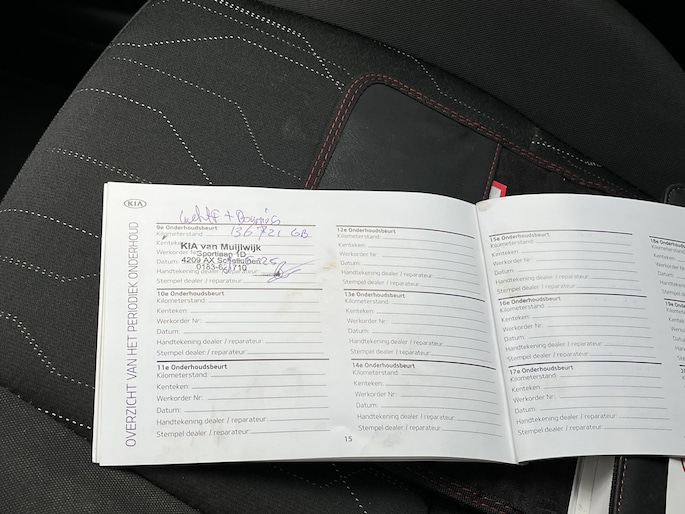 KIA
OVERZICHT VAN HET PERIODIEK ONDERHOUD
136721 GB
9e Onderhoudsbeurt
Kilometerstand:
Kenteken:
Datum:
Handtekening dealer
Stempel dealer / reparateur:
KIA van Muijlwijk
Sportlaan 1D
4209 AX Schelluinen
10e Onderhoudsbeurt
Kilometerstand:
Kenteken:
Werkorder Nr:
Datum:
Handtekening dealer / reparateur:
Stempel dealer / reparateur:
11e Onderhoudsbeurt
Kilometerstand:
Kenteken:
Werkorder Nr:
Datum:
Handtekening dealer / reparateur:
Stempel dealer / reparateur:
12e Onderhoudsbeurt
Kilometerstand:
Kenteken:
Werkorder Nr:
Datum:
Handtekening dealer / reparateur:
Stempel dealer / reparateur:
13e Onderhoudsbeurt
Kilometerstand:
Kenteken:
Werkorder Nr:
Datum:
Handtekening dealer / reparateur:
Stempel dealer / reparateur:
14e Onderhoudsbeurt
Kilometerstand:
Kenteken:
Werkorder Nr:
Datum:
Handtekening dealer / reparateur:
Stempel dealer / reparateur:
15
15e Onderhoudsbeurt
Kilometerstand:
Kenteken:
Werkorder Nr:
Datum:
Handtekening dealer / reparateur:
Stempel dealer / reparateur:
16e Onderhoudsbeurt
Kilometerstand:
Kenteken:
Werkorder Nr:
Datum:
Handtekening dealer / reparateur:
Stempel dealer / reparateur:
17e Onderhoudsbeurt
Kilometerstand:
Kenteken:
Werkorder Nr:
Datum:
Handtekening dealer / reparateur:
Stempel dealer / reparateur: